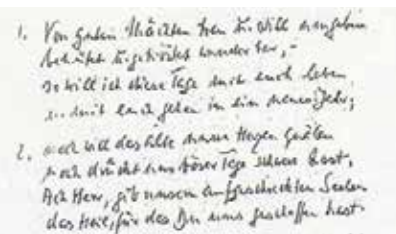 1. Von guten Mächten treu u. still umgeben
behütet u. getröstet wunderbar, –
so will ich diese Tage mit euch leben
und mit euch gehen in ein neues Jahr;
2. noch will das alte unsre Herzen quälen
noch drückt uns böser Tage schwere Last,
Ach Herr, gib unsern aufgeschreckten Seelen
das Heil, für das Du uns geschaffen hast.